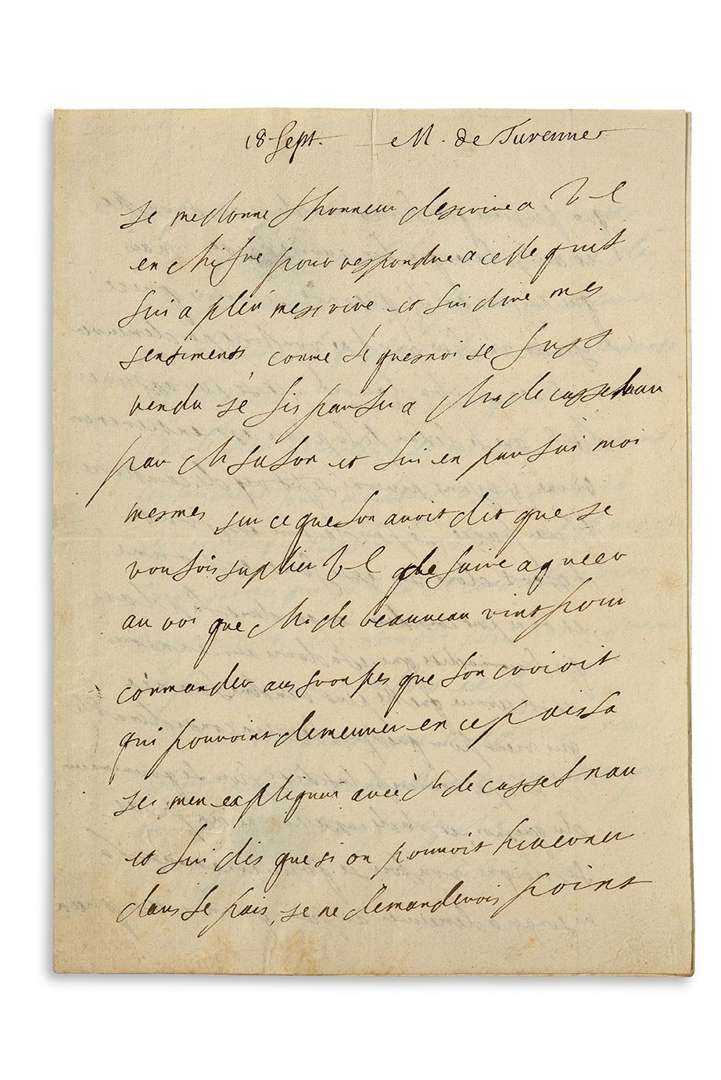 18 Sept. M. de Turenne
Je me donne l honneur d escrire a V E
en chifre pour respondre a celle quil
lui a pleu mescrire et lui dire mes
sentiments comme le quesnoi se fust
rendu je fis parler a Mr de castelnau
par Mr talon et lui en parlai moi
mesmes sur ce que lon avoit dit que je
voulois suplier V E de faire agreer
au roi que Mr de beauveau vint pour
commander aus troupes que lon croioit
qui pouvoint demeurer en ce pais la
je men expliquai avec Mr de castelnau
et lui dis que si on pouvoit hiverner
dans le pais, je ne demanderois point